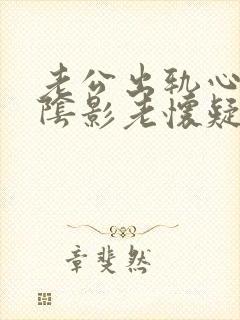 老公出轨心
阴影老怀疑
章斐然